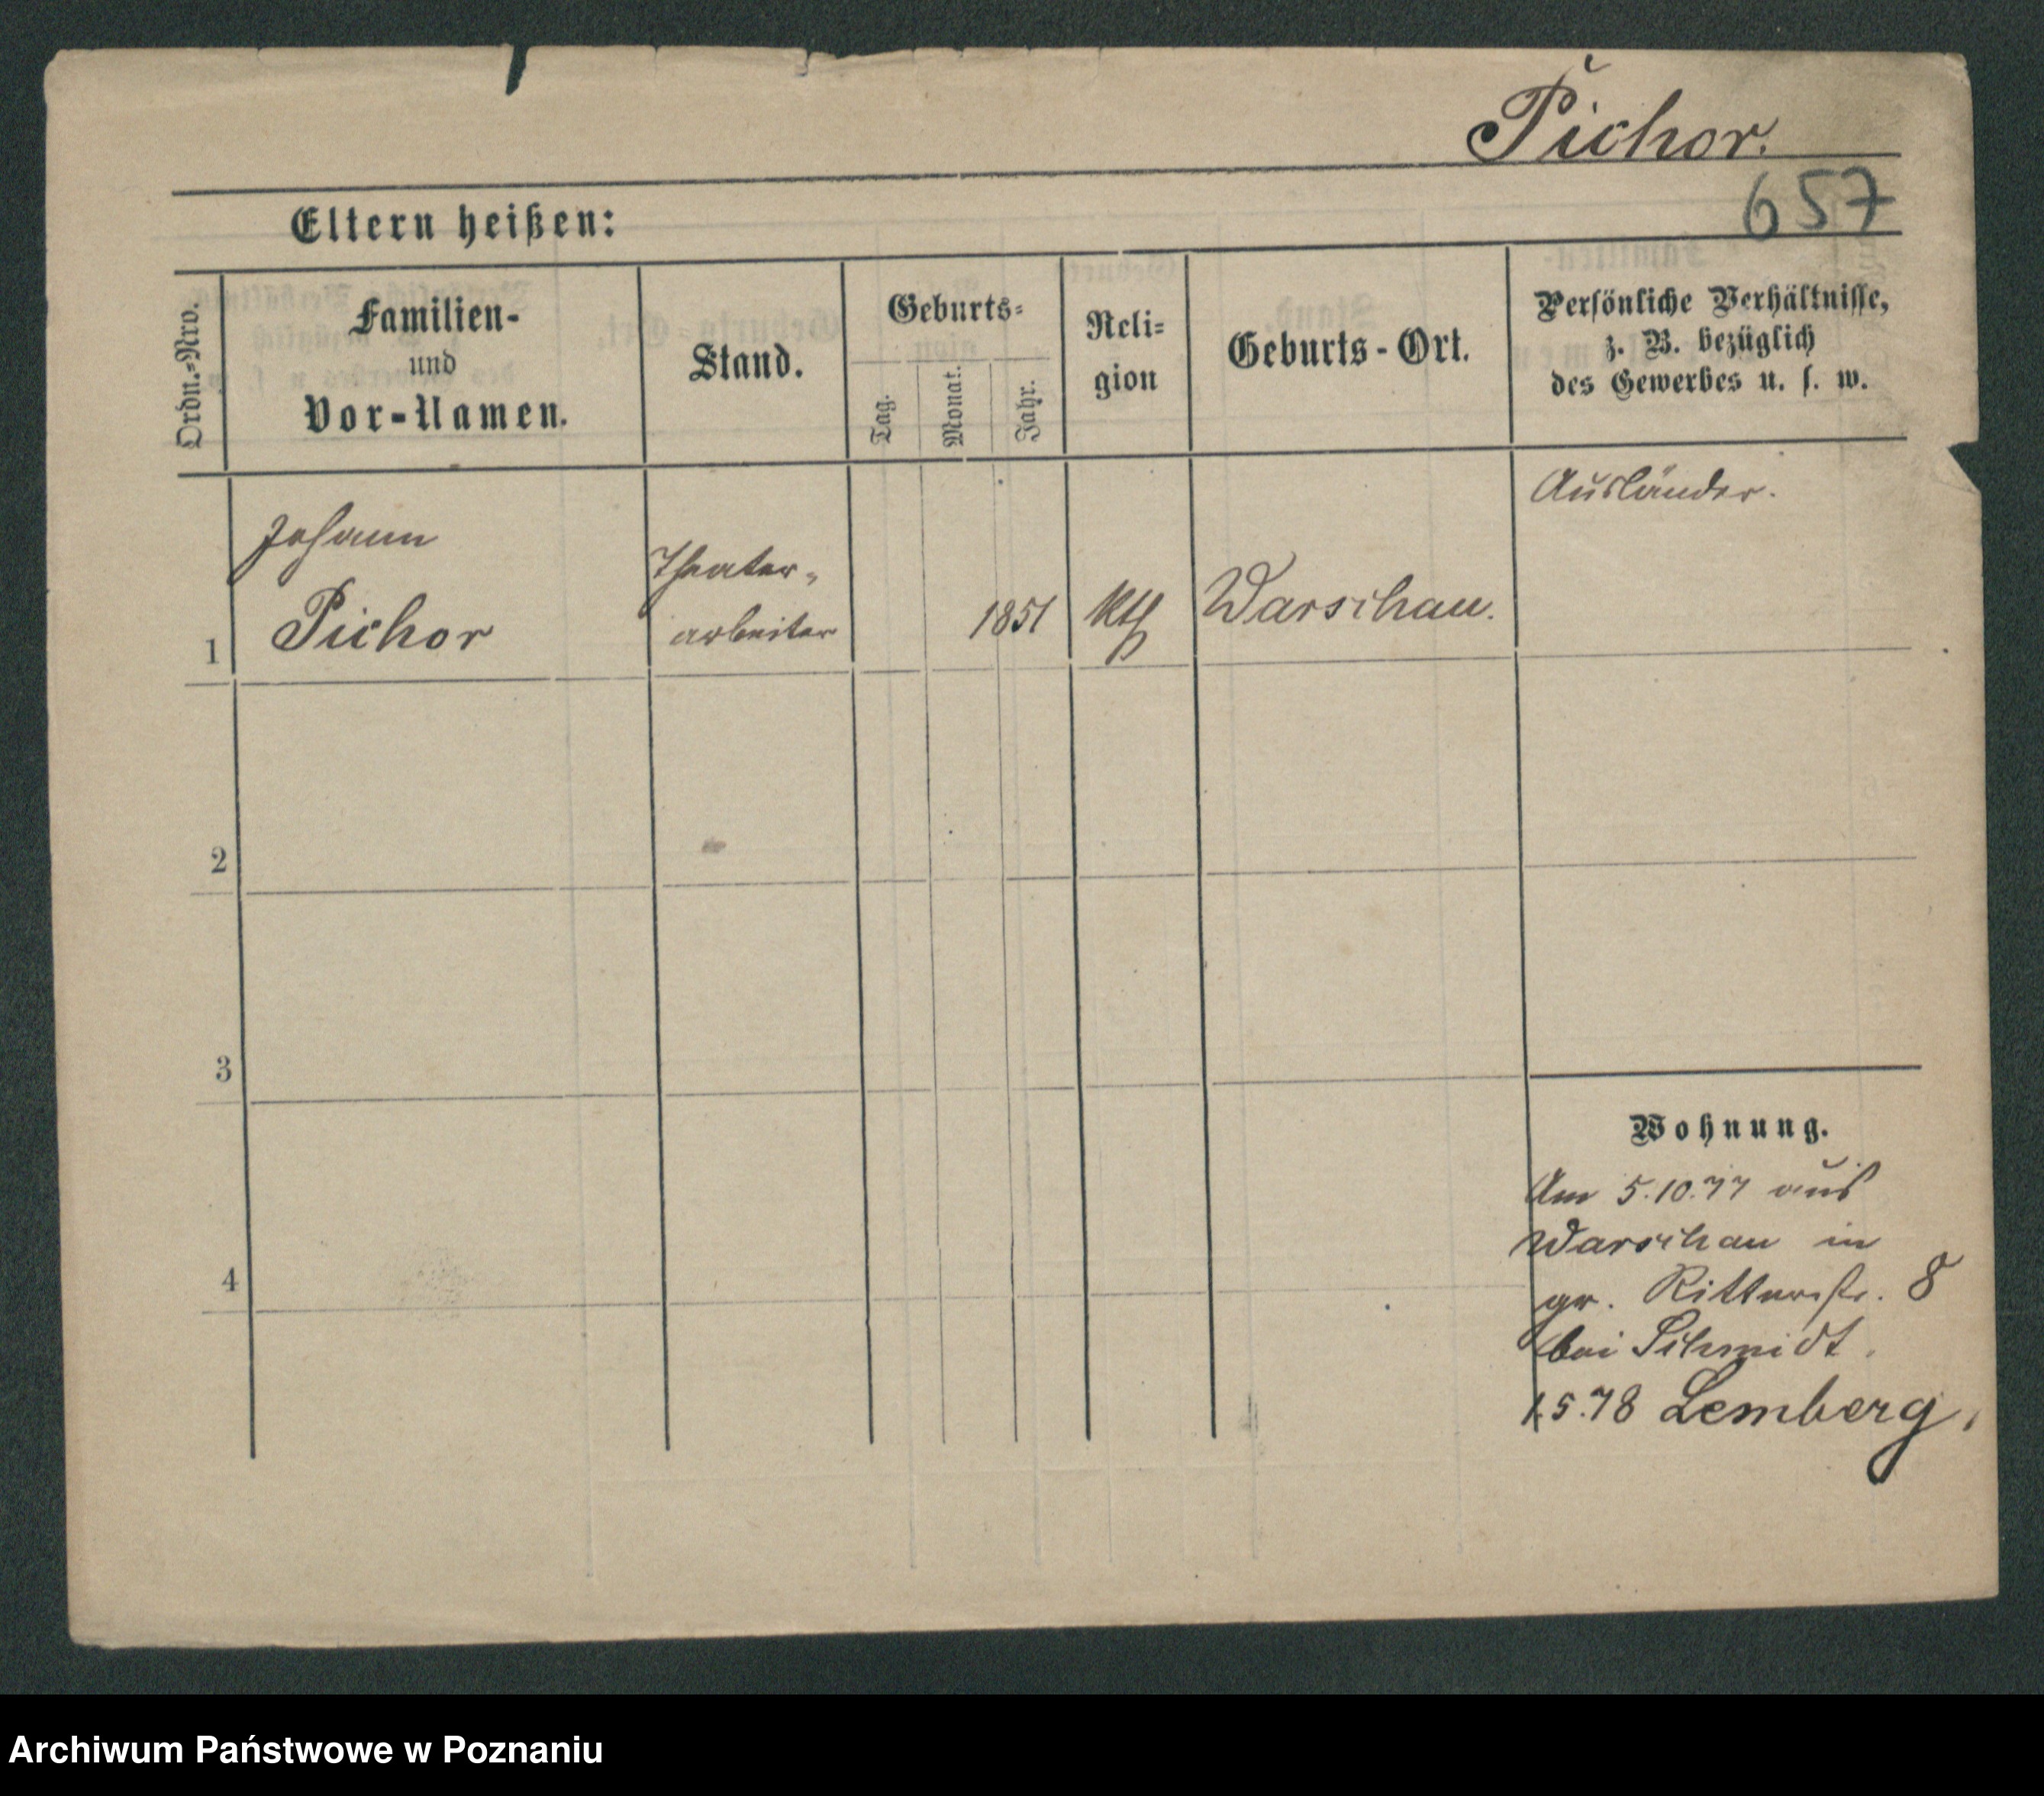 Pichor.
657
Eltern heißen:
Ordn.-Nro.
Familien-
und
Vor-Namen.
Stand.
Geburts-
Tag.
Monat.
Jahr.
Reli-
gion
Geburts-Ort.
Persönliche Verhältnisse,
z. B. bezüglich
des Gewerbes u. s. w.
Ausländer.
Johann
Pichor
Theater-
arbeiter
1851
kth
Warschau.
1
2
3
4
Wohnung.
Am 5.10.77 aus
Warschau in
gr. Ritterstr. 8
bei Schmidt.
1.5.78 Lemberg,
Archiwum Państwowe w Poznaniu